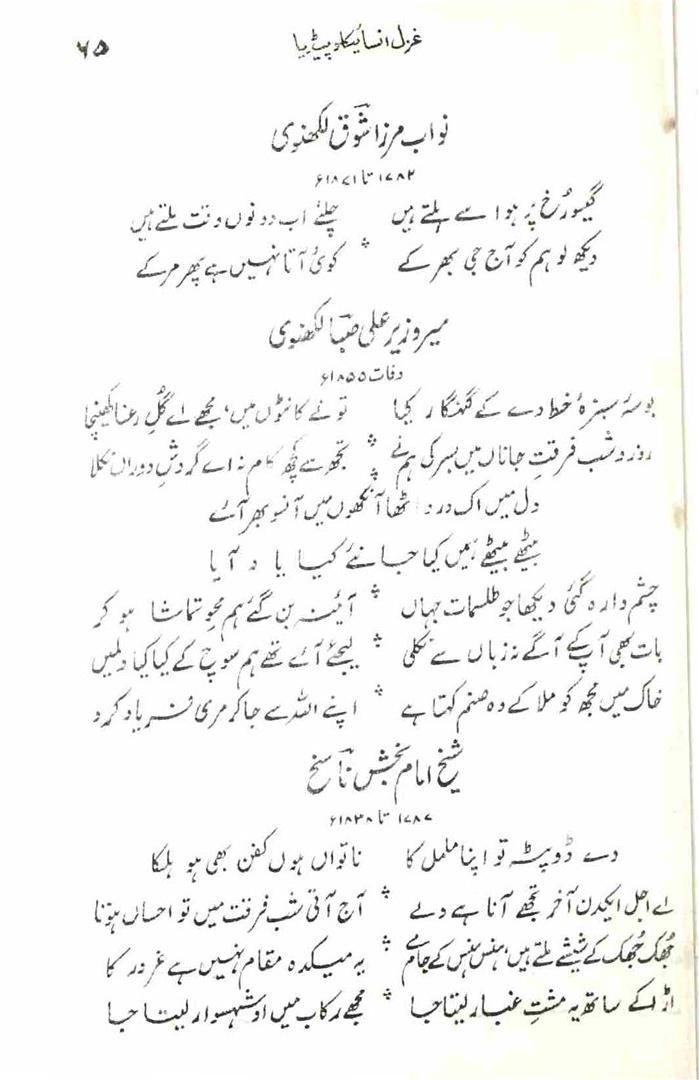 غزل انسائیکلوپیڈیا ۶۵
نواب مرزا شوق لکھنوی
۱۷۸۲ تا ۱۸۷۱ء
گیسو رُخ پر ہوا سے ہلتے ہیں چلئے اب دونوں وقت ملتے ہیں
دیکھ لو ہم کو آج جی بھر کے کوئی آتا نہیں ہے پھر مر کے
میر وزیر علی صبا لکھنوی
وفات ۱۸۵۵ء
بوسۂ سبزۂ خط دے کے گنہگار کیا تو نے کانٹوں میں، مجھے اے گُلِ رعنا کھینچا
روز و شب فرقتِ جاناں میں بسر کی ہم نے تجھ سے کچھ کام نہ اے گردشِ دوراں نکلا
دل میں اک درد اٹھا آنکھوں میں آنسو بھر آئے
بیٹھے بیٹھے ہمیں کیا جانئے کیا یاد آیا
چشم وا رہ گئی دیکھا جو طلسمات جہاں آئینہ بن گئے ہم محوِ تماشا ہو کر
بات بھی آپ کے آگے نہ زباں سے نکلی لیجئے آئے تھے ہم سوچ کے کیا کیا دلمیں
خاک میں مجھ کو ملا کے وہ صنم کہتا ہے اپنے اللہ سے جا کر مری فریاد کرو
شیخ امام بخش ناسخ
۱۷۸۷ تا ۱۸۳۸ء
دے ڈوپٹہ تو اپنا ململ کا ناتواں ہوں کفن بھی ہو ہلکا
اے اجل ایکدن آخر تجھے آنا ہے ولے آج آتی شب فرقت میں تو احساں ہوتا
جُھک جُھک کے شیشے ملتے ہیں ہنس ہنس کے جام سے یہ میکدہ مقام نہیں ہے غرور کا
اڑا کے ساتھ یہ مشتِ غبار لیتا جا مجھے رکاب میں او شہسوار لیتا جا